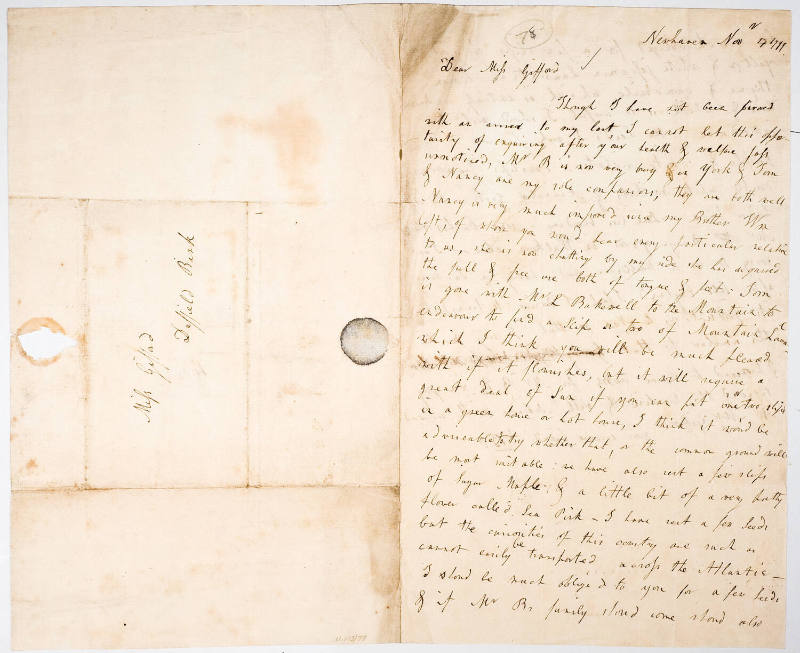 78
Newhaven Novr
Dear Miss Gifford
Though I have not been favored
with an answer to my last I cannot let this oppor-
tunity of enquiring after your health & welfare pass
unnoticed, Mr B is now very busy in York & Tom
& Nancy are my sole companions, they are both well
Nancy is very much improved since my Brother Wm
left, of whom you wou'd hear every particular relative
to us, she is now chatting by my side she has acquired
the full & free use both of tongue & feet: Tom
is gone with Mr Bakewell to the Mountain to
endeavour to find a Slip or two of Mountain
which I think you will be much pleased
with if it flourishes, but it will require a
great deal of Sun if you can put one or two slips
in a green house or hot house, I think it wou'd be
adviseable to try whether that, or the common ground will
be most suitable: we have also sent a few slips
of Sugar Maple & a little bit of a very pretty
flower called Sea Pink - I have sent a few Seeds
but the curiosities of this country are such as
cannot easily be transported across the Atlantic -
I shoud be much obliged to you for a few seeds
& if Mr Bs family shoud come shoud also
Miss Gifford
Duffield Bank